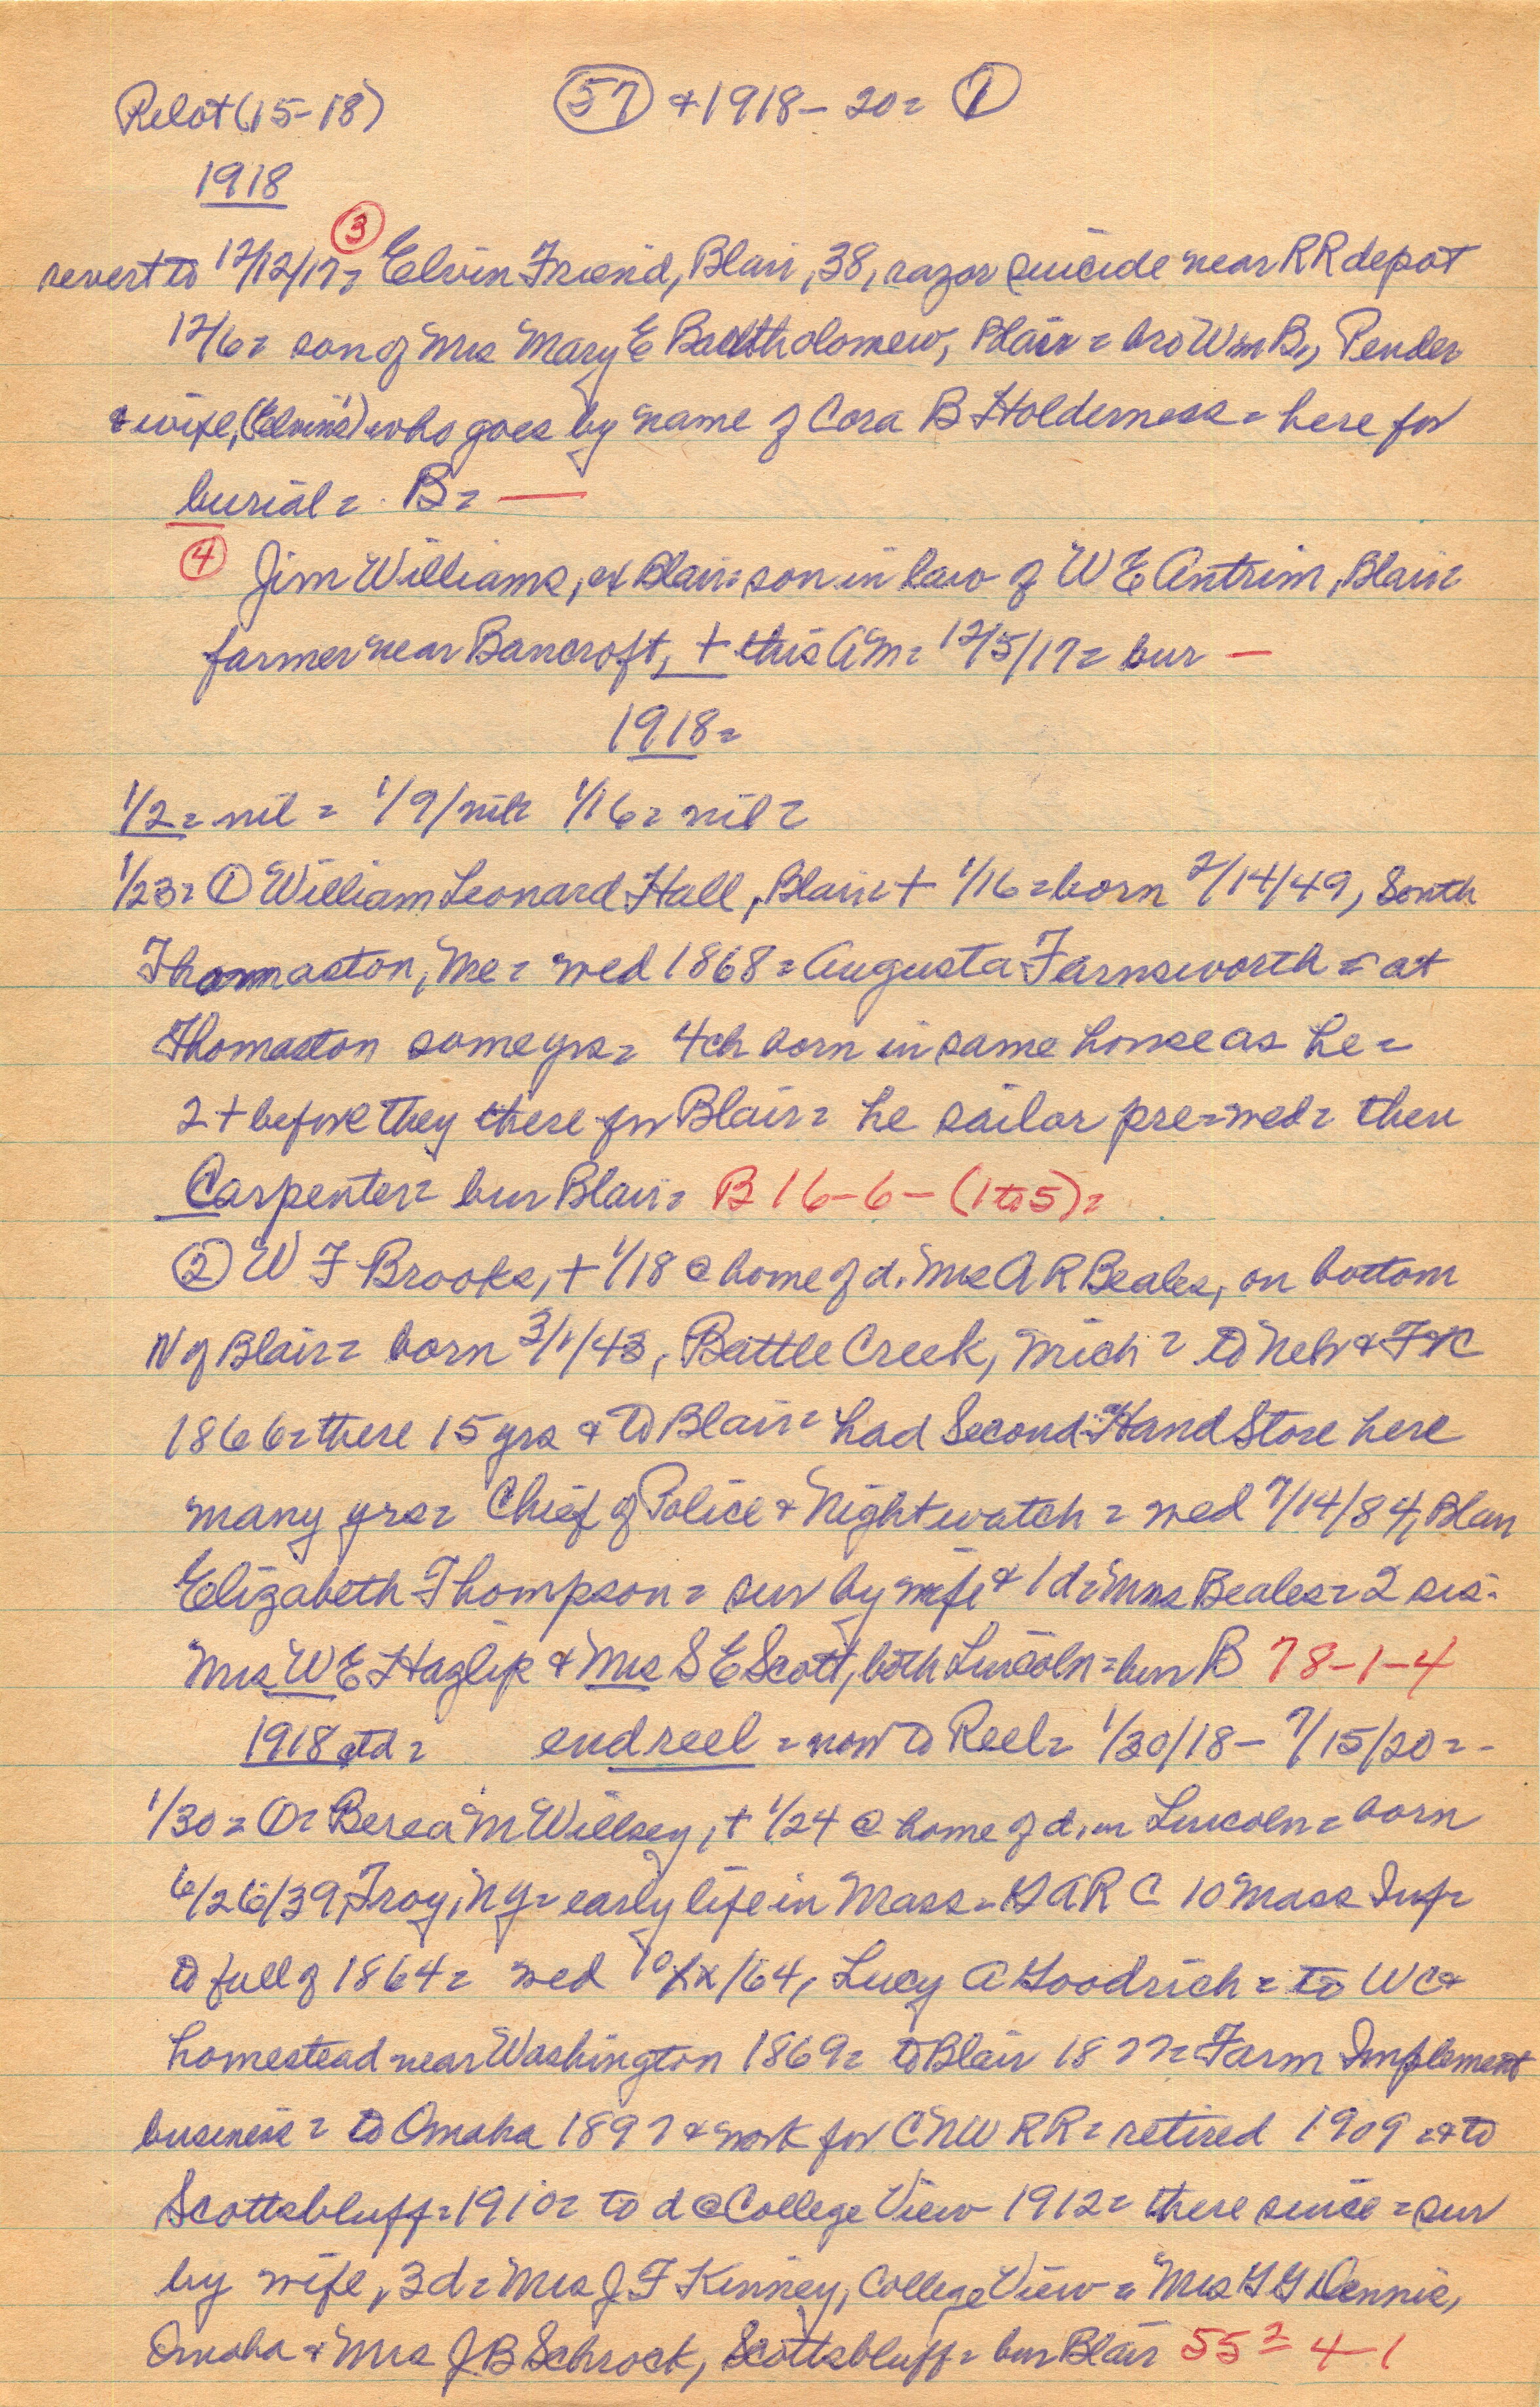 Pilot (15-18) (57) & 1918-20= (1)
1918
(3)
revert to 12/12/17= Elvin Friend, Blair, 38, razor suicide near RR depot
12/6= son of Mrs Mary E Bartholomew, Blair = bro Wm B, Pender
& wife, (Elvin's) who goes by name of Cora B Holderness = here for
burial = B = —
(4) Jim Williams, ex Blair = son in law of W E Antrim, Blair =
farmer near Bancroft, + this AM = 12/5/17 = bur —
1918 =
1/2 = nil = 1/9/ nil = 1/16 = nil =
1/23 = (1) William Leonard Hall, Blair = + 1/16 = born 2/14/49, South
Thomaston, Me = wed 1868 = Augusta Farnsworth = at
Thomaston some yrs = 4 ch born in same house as he =
2 + before they there for Blair = he sailor pre-wed = then
Carpenter = bur Blair = B 16-6-(1 to 5) =
(2) W F Brooks, + 1/18 @ home of d. Mrs A R Beales, on bottom
N of Blair = born 3/1/43, Battle Creek, Mich = to Neb & Ft C
1866 = there 15 yrs & to Blair = had Second-Hand Store here
many yrs = Chief of Police & Nightwatch = wed 7/14/84, Blair
Elizabeth Thompson = sur by wife & 1 d = Mrs Beales = 2 sis.
Mrs W E Hazlip & Mrs S E Scott, both Lincoln = bur B 78-1-4
1918 ctd = end reel = now to Reel = 1/30/18 - 7/15/20 = -
1/30 = (1) = Berea M Willsey, + 1/24 @ home of d. in Lincoln = born
6/26/39, Troy, NY = early life in Mass = GAR C 10 Mass Inf =
to fall of 1864 = wed 10/xx/64, Lucy A Goodrich = to WC &
homestead near Washington 1869 = to Blair 1877 = Farm Implement
business = to Omaha 1897 & work for CNW RR = retired 1909 = & to
Scottsbluff = 1910 = to d @ College View 1912 = there since = sur
by wife, 3 d = Mrs J F Kinney, College View = Mrs G G Dennis,
Omaha & Mrs J B Schrock, Scottsbluff = bur Blair 55 = 4-1